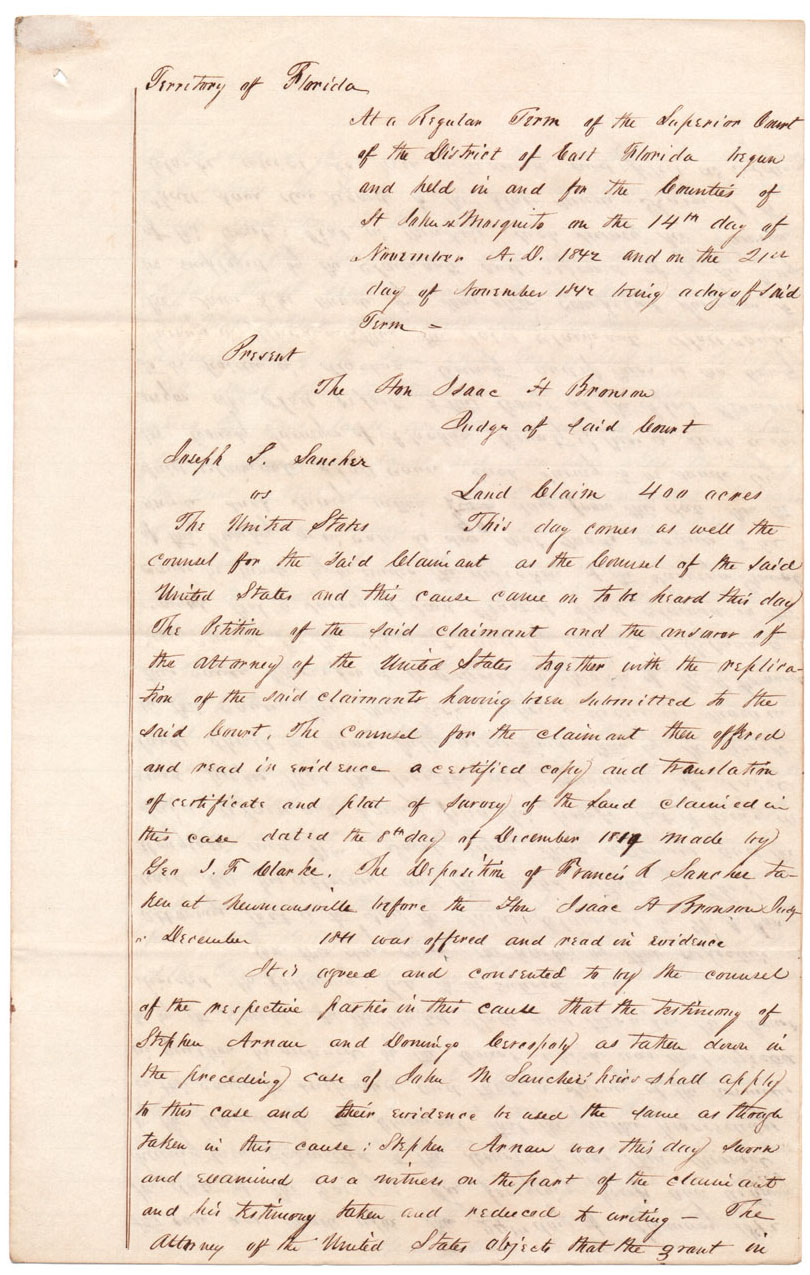 Territory of Florida
At a Regular Term of the Superior Court
of the District of East Florida begun
and held in and for the Counties of
St Johns & Mosquito on the 14th day of
November A. D. 1842 and on the 21st
day of November 1842 being a day of said
Term =
Present
The Hon Isaac H Bronson
Judge of said Court
Joseph S. Sanchez
vs Land Claim 400 acres
The United States This day comes as well the
counsel for the said Claimant as the Counsel of the said
United States and this cause came on to be heard this day
The Petition of the said claimant and the answer of
the attorney of the United States together with the replica-
-tion of the said claimants having been submitted to the
said Court, The counsel for the claimant then offered
and read in evidence a certified copy and translation
of certificate and plat of survey of the Land claimed in
this case dated the 8th day of December made by
Geo J. F Clarke. The Deposition of Francis R Sanchez ta-
ken at Newmansville before the Hon Isaac H Bronson Judge
December 1841 was offered and read in evidence
It is agreed and consented to by the counsel
of the respective parties in this cause that the testimony of
Stephen Arnau and Domingo as taken down in
the preceding case of John M Sanchez' heirs shall apply
to this case and their evidence be used the same as though
taken in this cause : Stephen Arnau was this day sworn
and examined as a witness on the part of the claimant
and his testimony taken and reduced to writing — The
Attorney of the United States objects that the grant in